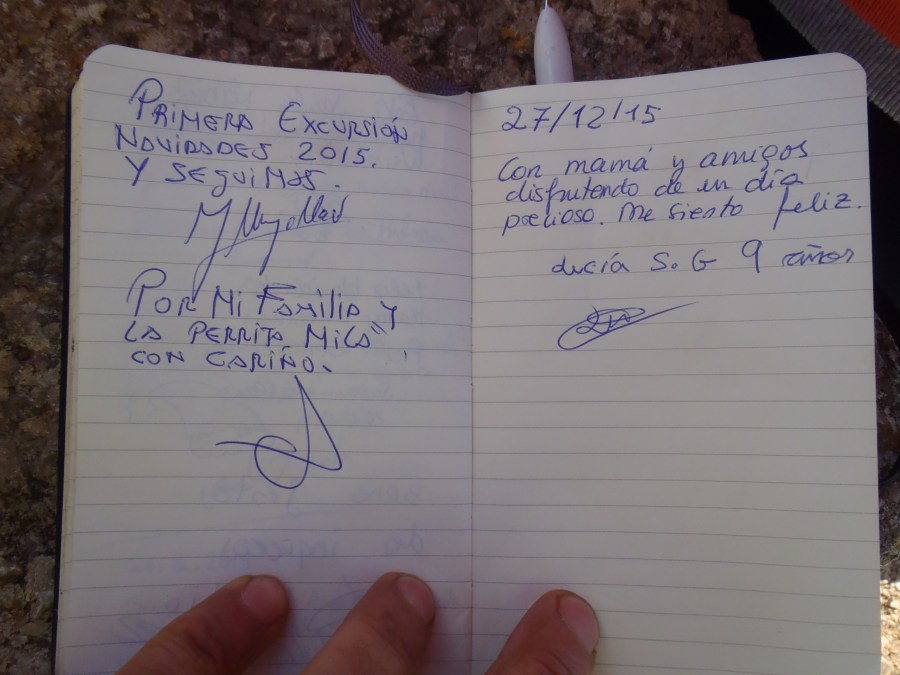 PRIMERA EXCURSIÓN
NAVIDADES 2015.
Y SEGUIMOS.
POR MI FAMILIA Y
LA PERRITA MILA"
CON CARIÑO.
27/12/15
Con mamá y amigos
disfrutendo de un día
precioso. Me siento feliz.
Lucía S. G 9 años